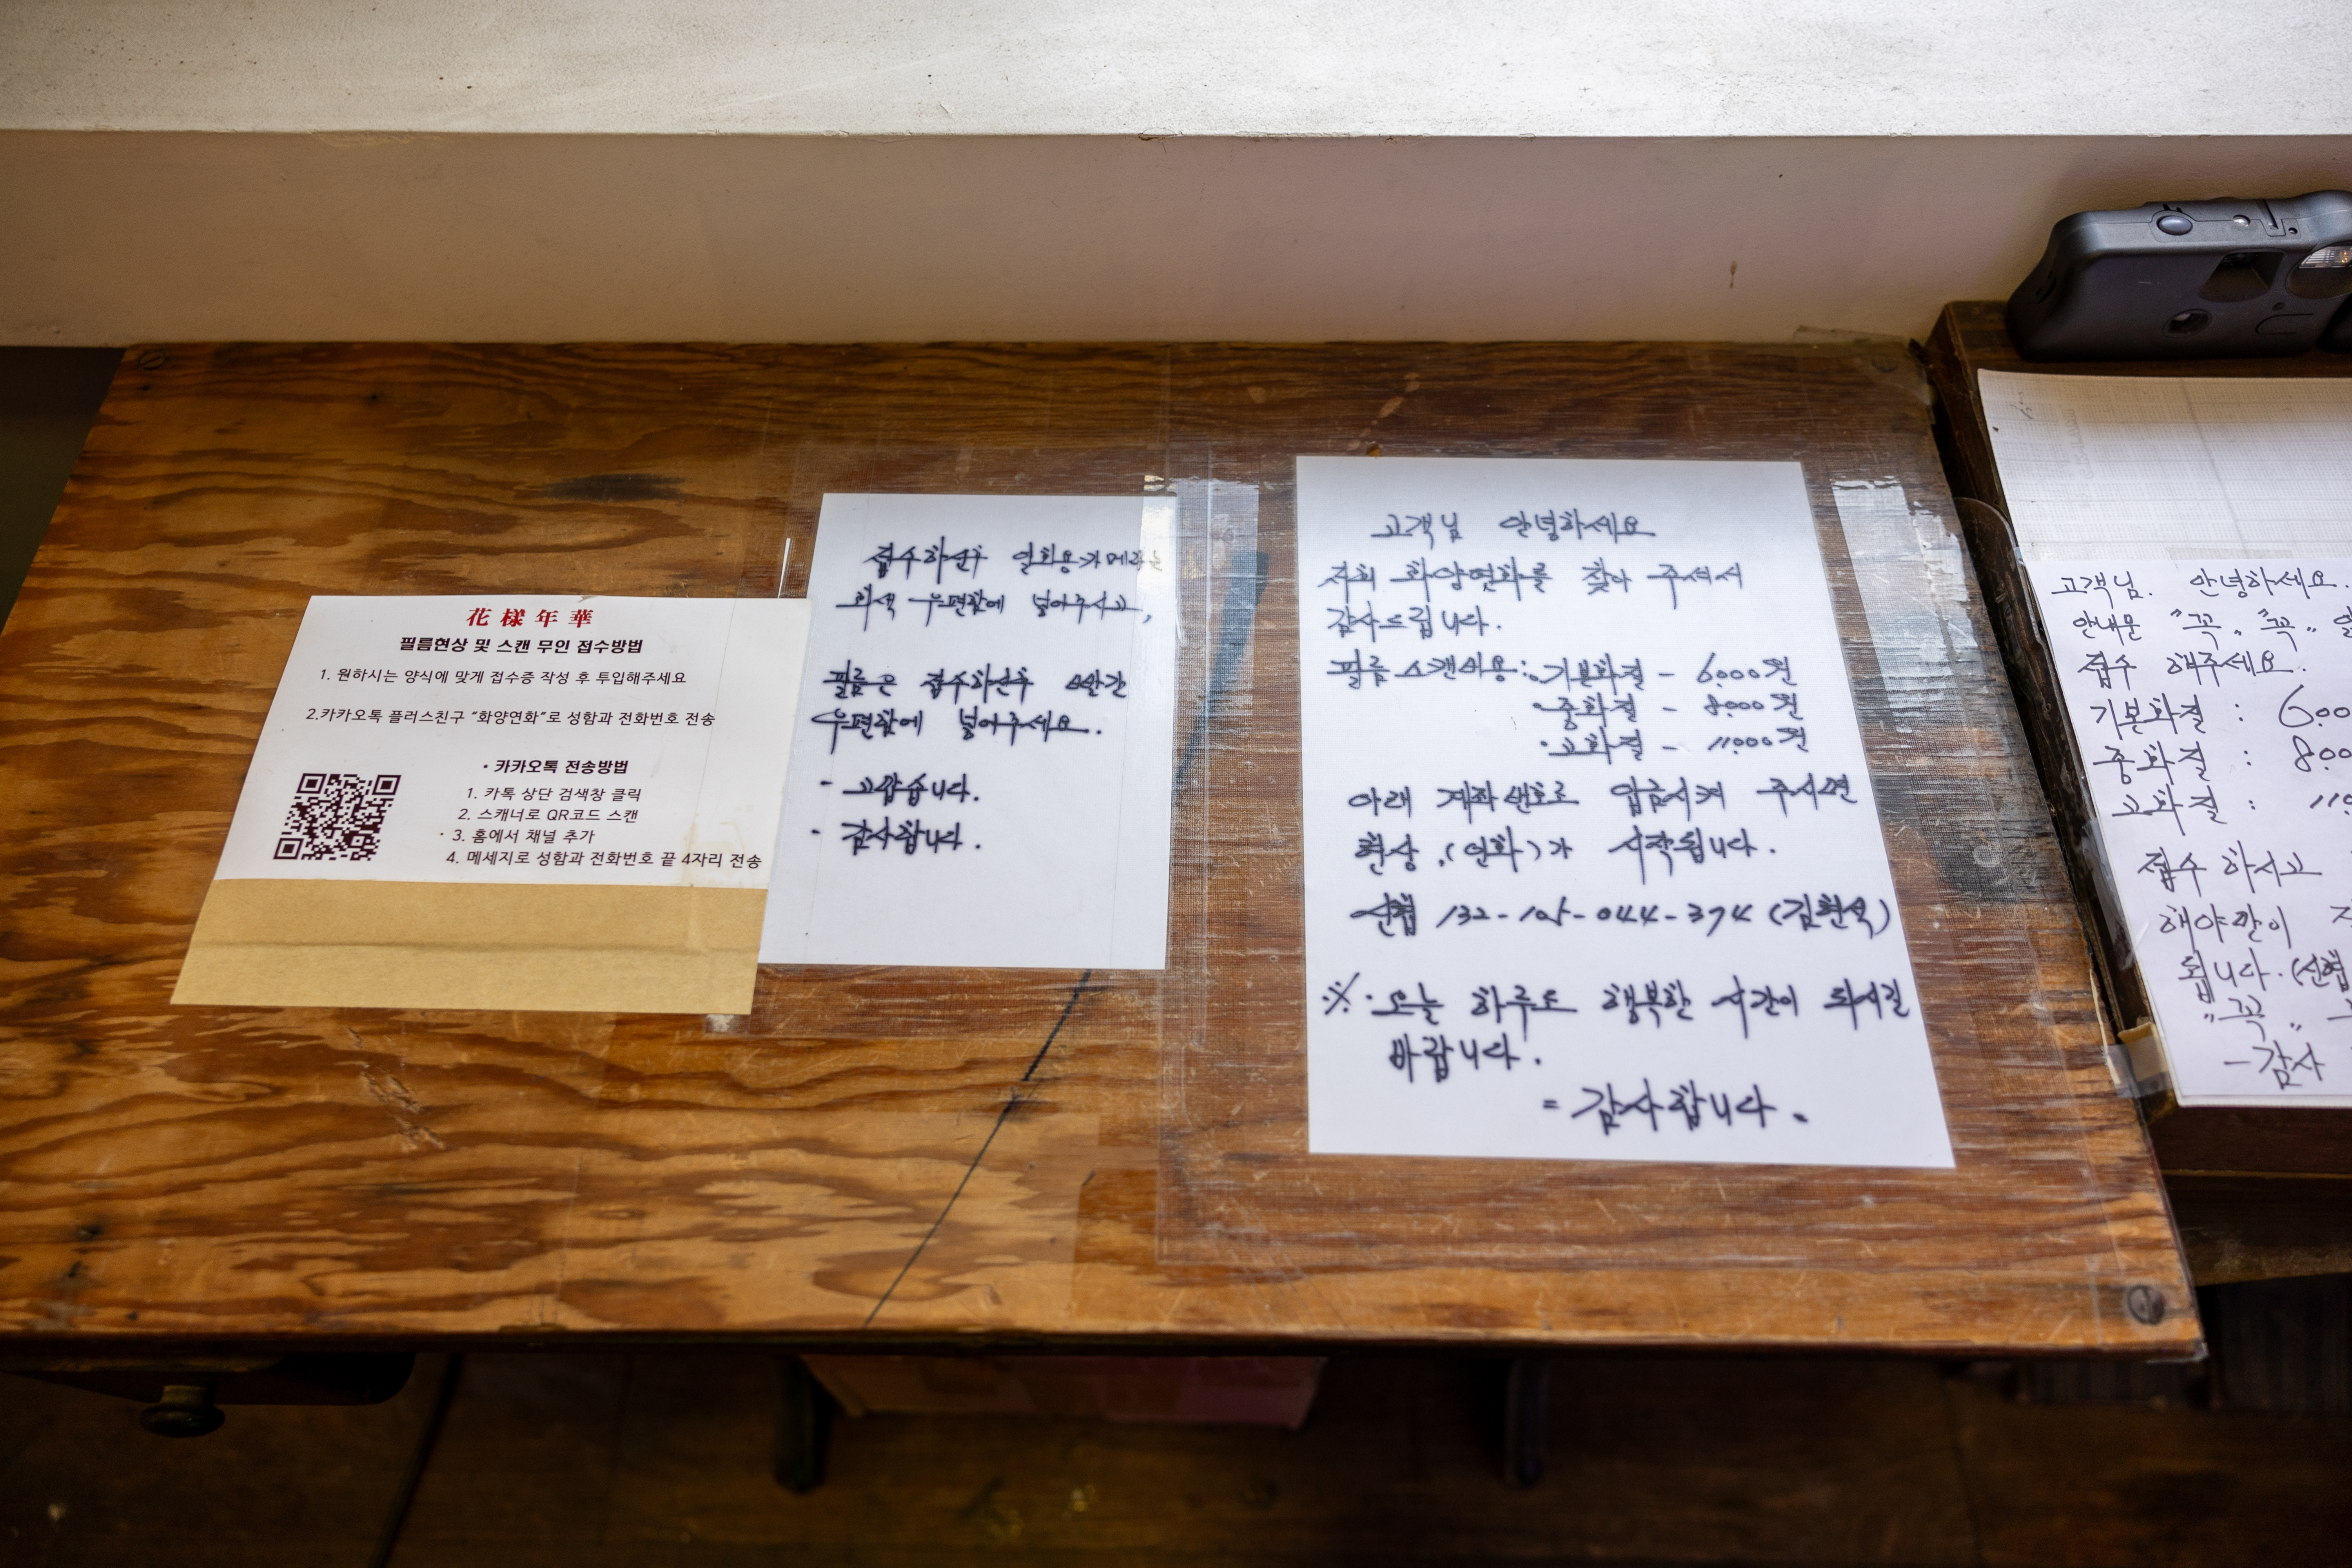 花樣年華
필름현상 및 스캔 무인 접수방법
1. 원하시는 양식에 맞게 접수증 작성 후 투입해주세요
2.카카오톡 플러스친구 "화양연화"로 성함과 전화번호 전송
· 카카오톡 전송방법
1. 카톡 상단 검색창 클릭
2. 스캐너로 QR코드 스캔
· 3. 홈에서 채널 추가
4. 메세지로 성함과 전화번호 끝 4자리 전송
접수하신후 일회용카메라는
회색 우편함에 넣어주시고,
필름은 접수하신후 빨간
우편함에 넣어주세요.
- 고맙습니다.
- 감사합니다.
고객님 안녕하세요
저희 화양연화를 찾아 주셔서
감사드립니다.
필름 스캔비용: · 기본화질 - 6,000원
· 중화질 - 8,000원
· 고화질 - 11,000원
아래 계좌번호로 입금시켜 주시면
현상,(인화)가 시작됩니다.
신협 132-105-044-374 (김현석)
※ · 오늘 하루도 행복한 시간이 되시길
바랍니다.
= 감사합니다.
고객님. 안녕하세요.
안내문 "꼭" "꼭"
접수 해주세요.
기본화질 : 6,00
중화질 : 8,00
고화질 : 11,0
접수 하시고
해야만이
됩니다. (신협
"꼭"
- 감사